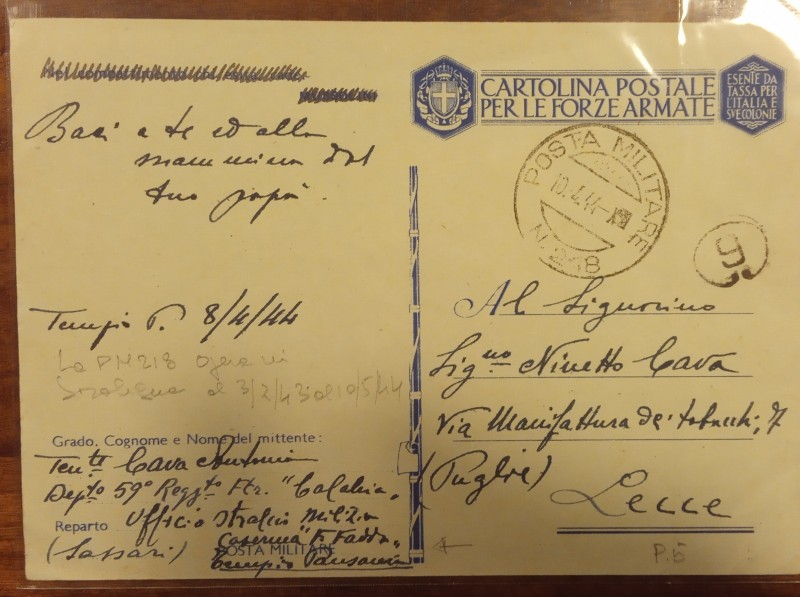 CARTOLINA POSTALE
PER LE FORZE ARMATE
ESENTE DA
TASSA PER
L'ITALIA E
SVE COLONIE
Baci a te ed alla
mammina dal
tuo papà.
POSTA MILITARE
10.4.44
N. 218
9
Tempio P. 8/4/44
La PM 218 opera in
Sardegna al 3/2/43 al 10/5/44
Al Signorino
Sig.no Ninetto Cava
Via Manifattura dei tabacchi, 7
(Puglie)
Lecce
Grado, Cognome e Nome del mittente:
Ten.te Cava Antonio
Dep.to 59° Regg.to Ftr. "Calabria"
Reparto Ufficio Stralcio Milizia
Caserma "F. Fadda"
(Sassari)
POSTA MILITARE
Tempio Pausania
P.5